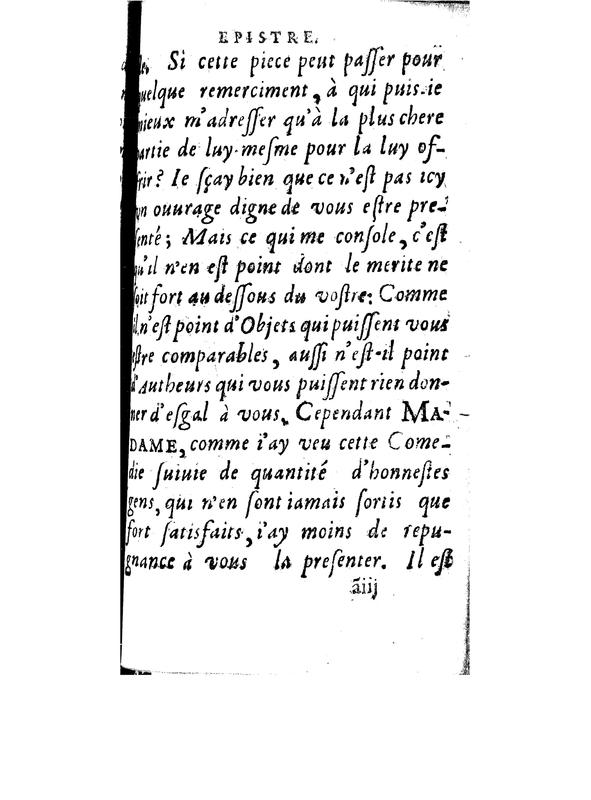 EPISTRE.
Si cette piece peut paſſer pour
quelque remerciment, à qui puis-ie
mieux m'adreſſer qu'à la plus chere
partie de luy-meſme pour la luy of-
frir? Ie ſçay bien que ce n'eſt pas icy
vn ouurage digne de vous eſtre pre-
ſenté; Mais ce qui me conſole, c'eſt
qu'il n'en eſt point dont le merite ne
ſoit fort au deſſous du voſtre: Comme
il n'eſt point d'Objets qui puiſſent vous
eſtre comparables, auſſi n'eſt-il point
d'Autheurs qui vous puiſſent rien don-
ner d'eſgal à vous. Cependant MA-
DAME, comme i'ay veu cette Come-
die ſuiuie de quantité d'honneſtes
gens, qui n'en ſont iamais ſortis que
fort ſatisfaits, i'ay moins de repu-
gnance à vous la preſenter. Il eſt
ãiij